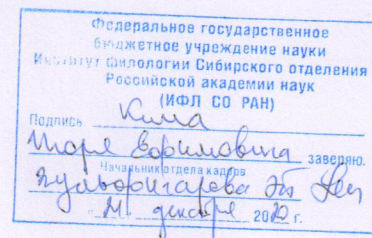 Федеральное государственное
бюджетное учреждение науки
Институт филологии Сибирского отделения
Российской академии наук
(ИФЛ СО РАН)
Подпись Кима
Игоря Ефимовича заверяю.
Начальник отдела кадров
21 декабря 2022 г.